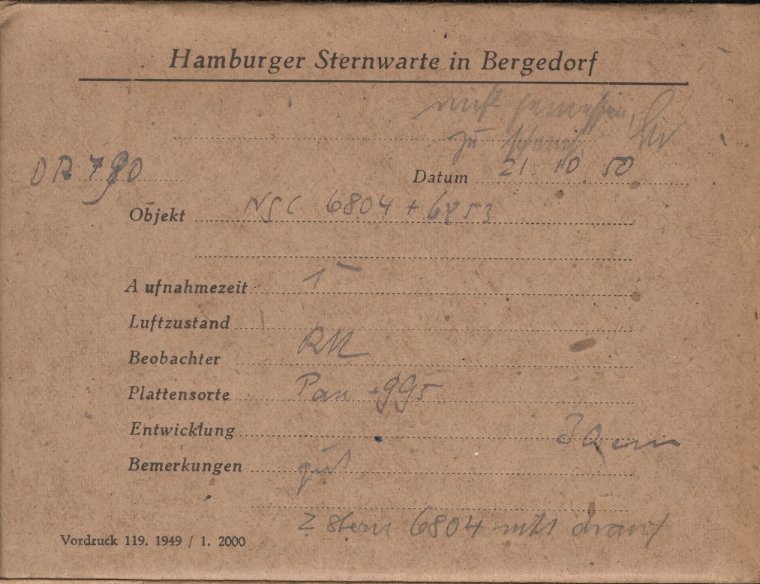 Hamburger Sternwarte in Bergedorf
nicht gemessen,
zu
DR 790
Datum 21. 10. 50
Objekt NGC 6804 + 6853
Aufnahmezeit 1
Luftzustand
Beobachter
Plattensorte Pan
Entwicklung 30 cm
Bemerkungen gut
Z Stern 6804 nicht drauf
Vordruck 119. 1949 / 1. 2000